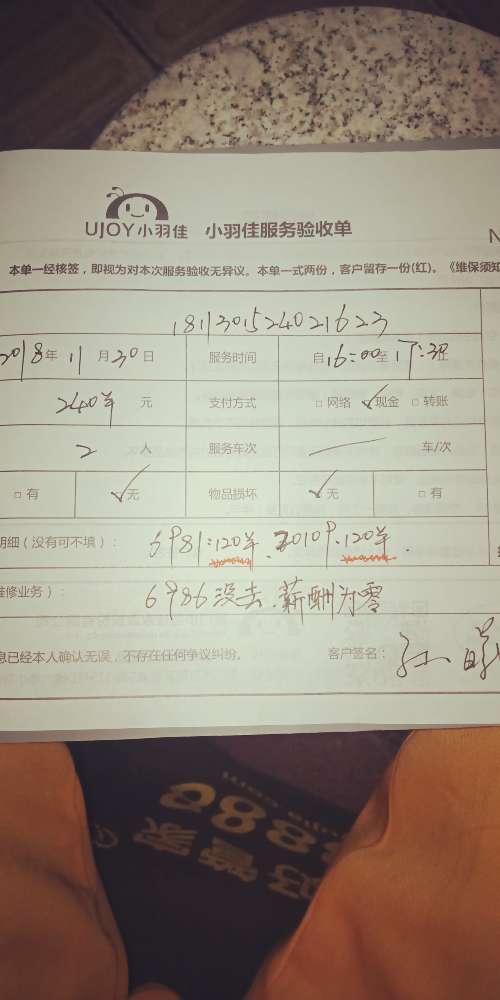 UJOY小羽佳 小羽佳服务验收单
N
本单一经核签，即视为对本次服务验收无异议。本单一式两份，客户留存一份(红)。《维保须知
1811301524021623
2018年11月30日 服务时间 自16:00至17:30止
240羊元 支付方式 □网络 ✓现金 □转账
2人 服务车次 车/次
□有 ✓无 物品损坏 ✓无 □有
明细（没有可不填）： 6981:120羊.20109.120羊.
修业务）： 6986没去.薪酬为零
息已经本人确认无误，不存在任何争议纠纷。 客户签名：
好管家